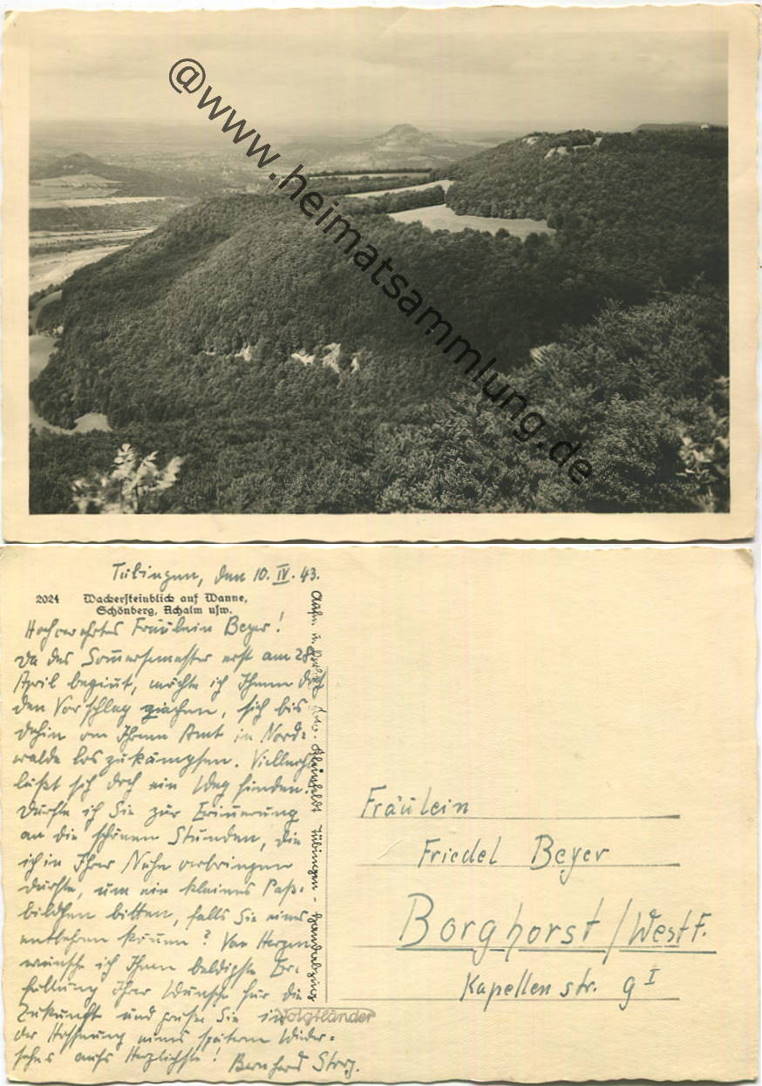 @www.heimatsammlung.de
Tübingen, den 10. IV. 43.
2024 Wackersteinblick auf Wanne,
Schönberg, Achalm usw.
Hochverehrtes Fräulein Beyer!
Da das Sommersemester erst am 28.
April beginnt, möchte ich Ihnen
den Vorschlag machen, sich bis
dahin von Ihrem Amt in Nord-
walde loszukämpfen. Vielleicht
läßt sich doch ein Weg finden.
Dürfte ich Sie zur Erinnerung
an die schönen Stunden, die
ich in Ihrer Nähe verbringen
durfte, um ein kleines Paß-
bildchen bitten, falls Sie eines
entbehren können? Von Herzen
wünsche ich Ihnen baldigste Er-
füllung Ihrer Wünsche für die
Zukunft und grüße Sie in
der Hoffnung eines späteren Wieder-
sehns aufs Herzlichste! Bernhard
Aufn. u. Kleinfeldt Tübingen - Handabzug
Voigtländer
Fräulein
Friedel Beyer
Borghorst/Westf.
Kapellenstr. 9 I